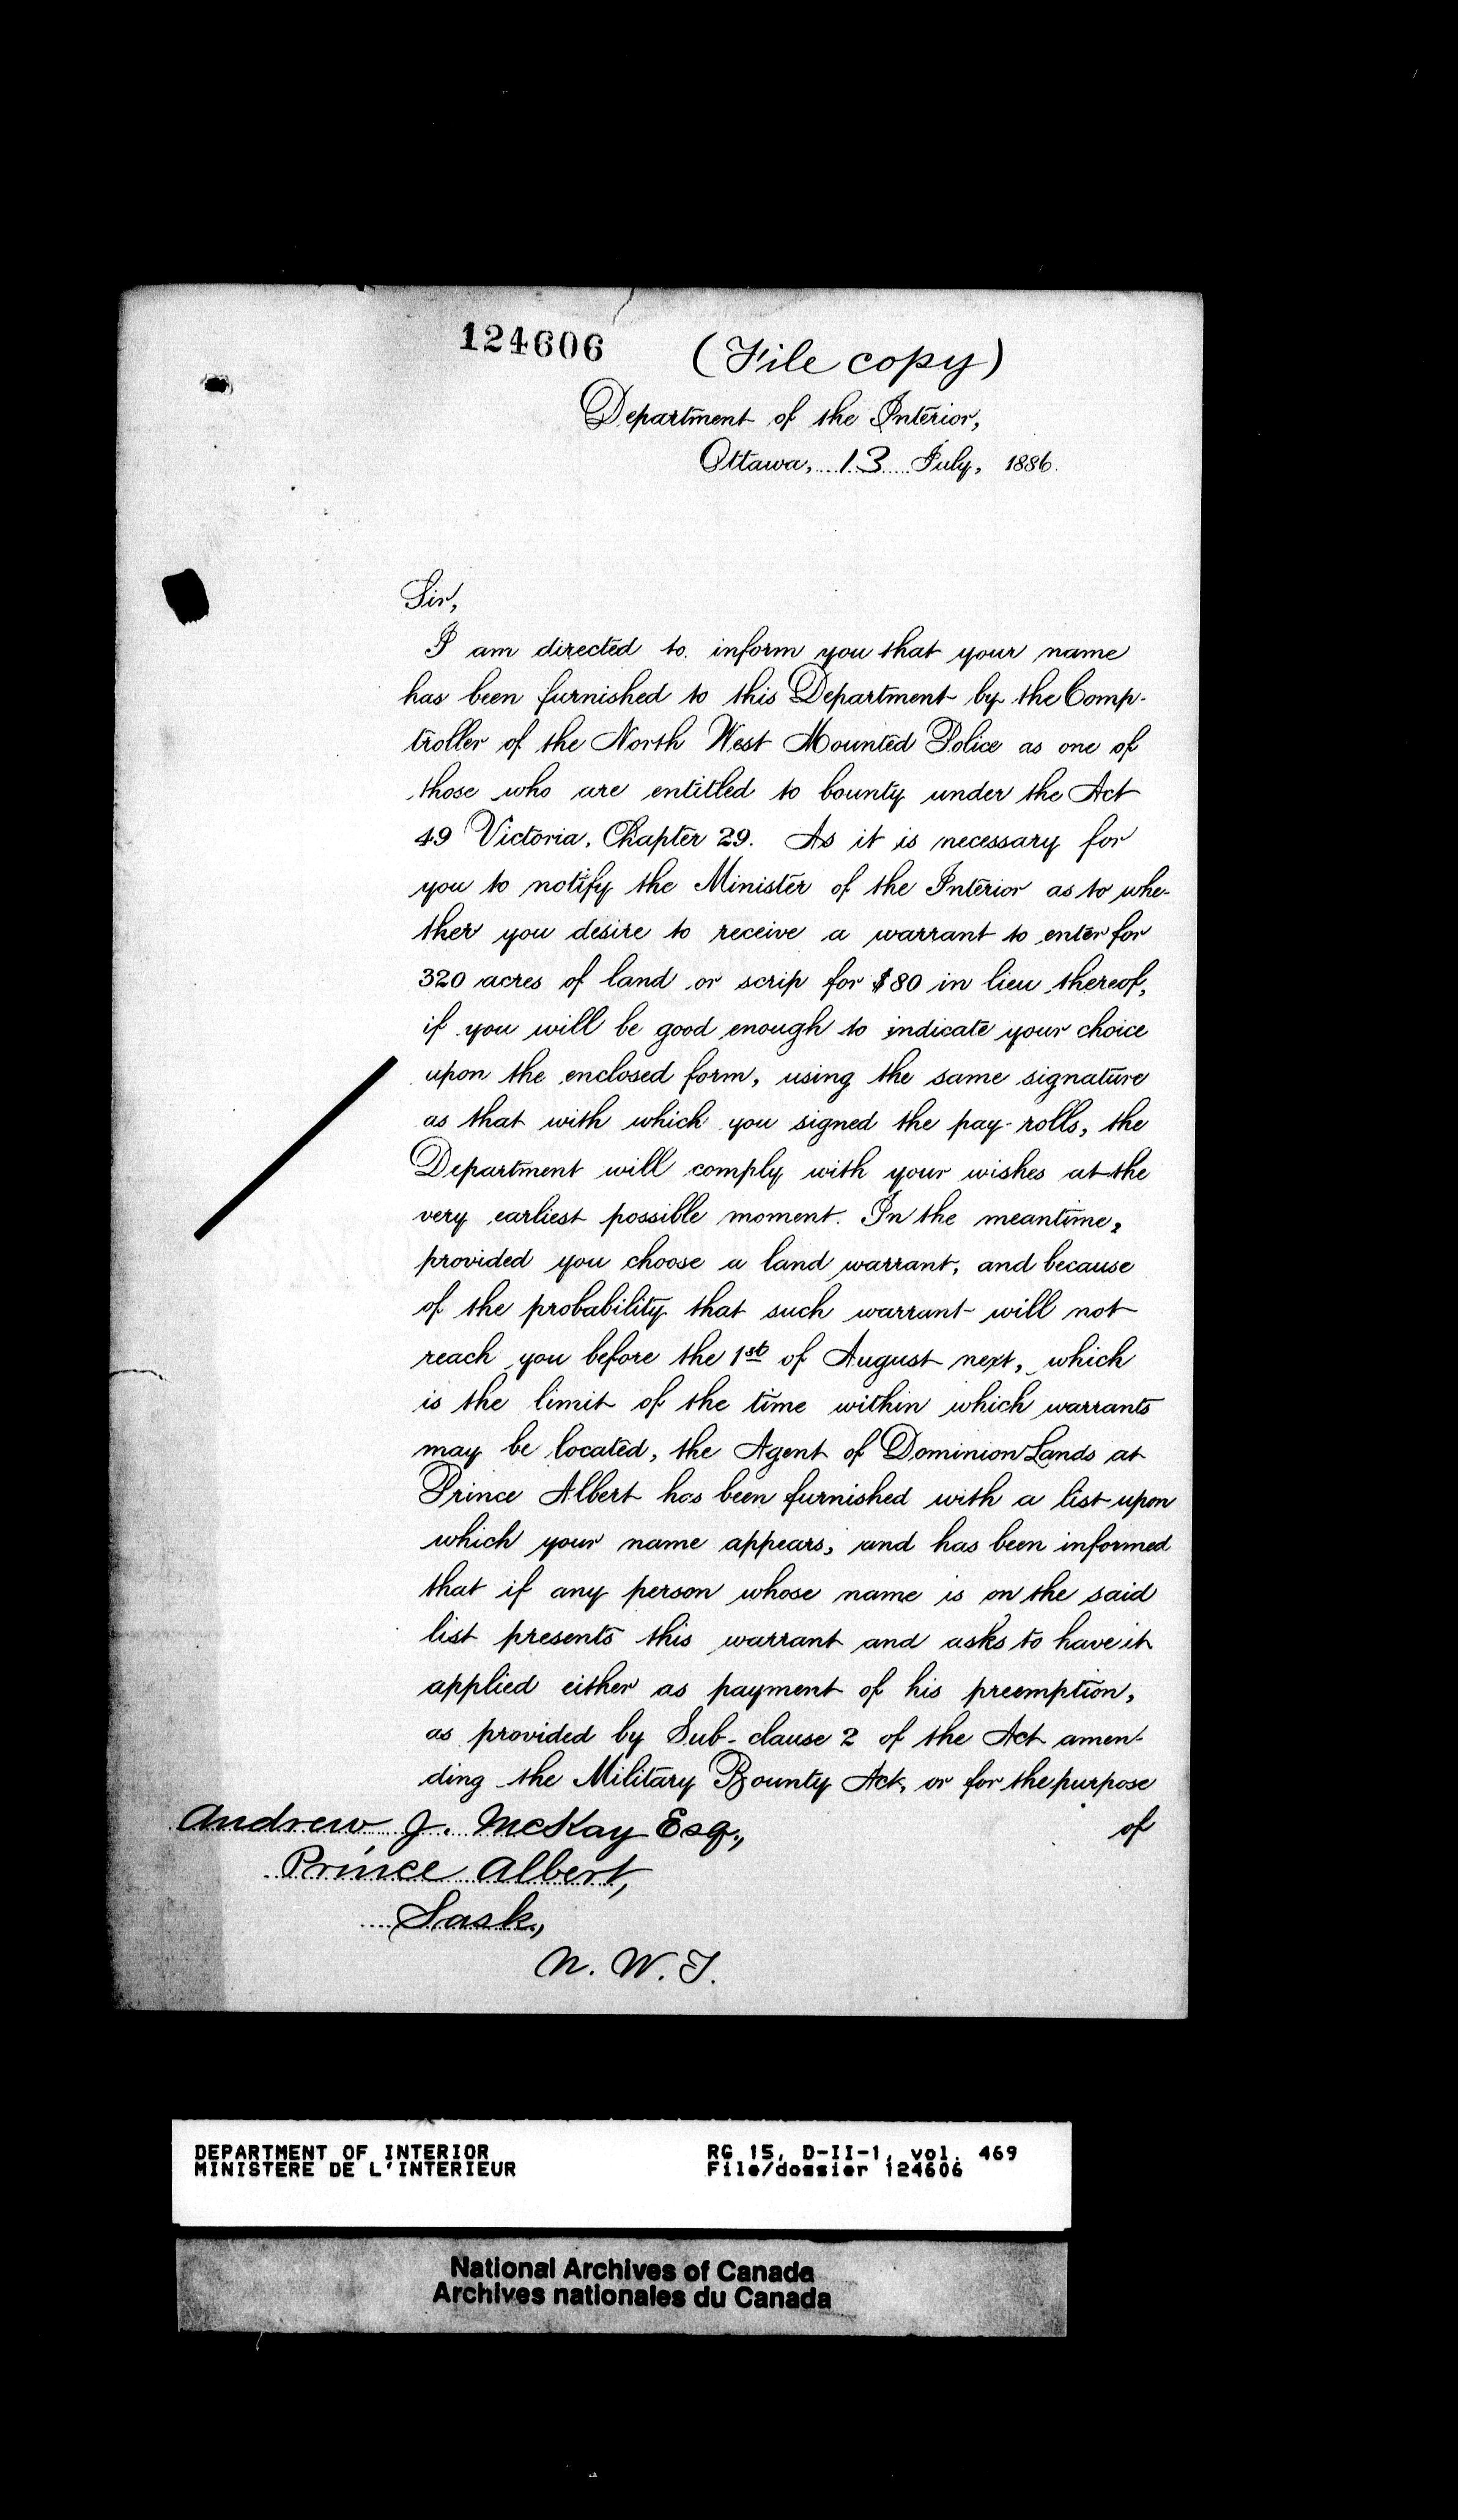 124606 (File copy)
Department of the Interior,
Ottawa, 13 July, 1886.
Sir,
I am directed to inform you that your name
has been furnished to this Department by the Comp-
troller of the North West Mounted Police as one of
those who are entitled to bounty under the Act
49 Victoria, Chapter 29. As it is necessary for
you to notify the Minister of the Interior as to whe-
ther you desire to receive a warrant to enter for
320 acres of land or scrip for $80 in lieu thereof,
if you will be good enough to indicate your choice
upon the enclosed form, using the same signature
as that with which you signed the pay-rolls, the
Department will comply with your wishes at the
very earliest possible moment. In the meantime,
provided you choose a land warrant, and because
of the probability that such warrant will not
reach you before the 1st of August next, which
is the limit of the time within which warrants
may be located, the Agent of Dominion Lands at
Prince Albert has been furnished with a list upon
which your name appears, and has been informed
that if any person whose name is on the said
list presents this warrant and asks to have it
applied either as payment of his preemption,
as provided by Sub-clause 2 of the Act amen-
ding the Military Bounty Act, or for the purpose
of
Andrew J. McKay Esq.,
Prince Albert,
Sask.,
N. W. T.
DEPARTMENT OF INTERIOR
MINISTERE DE L'INTERIEUR
RG 15, D-II-1, vol. 469
File/dossier 124606
National Archives of Canada
Archives nationales du Canada